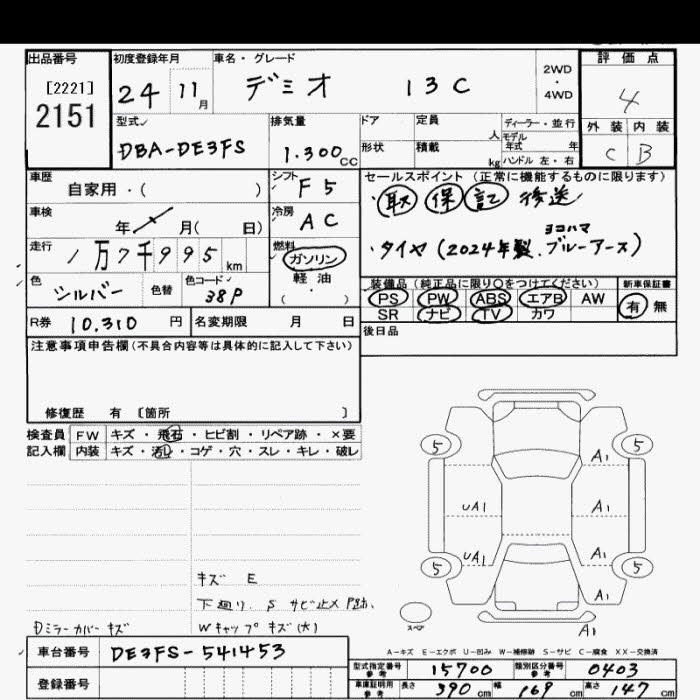 出品番号 初度登録年月 車名・グレード 2WD・4WD 評価点
[2221]
2151
24 11月 デミオ 13C 4
型式 排気量 ドア 定員 人 ディーラー・並行 外装 内装
DBA-DE3FS 1.300cc 形状 積載 kg モデル年式 年 C B
ハンドル 左・右
車歴 自家用・( ) シフト F5 セールスポイント (正常に機能するものに限ります)
車検 年 月( 日) 冷房 AC ・取 保 記 後送
走行 1万7千995km 燃料 ガソリン ・タイヤ(2024年製.ヨコハマ ブルーアース)
軽油
・
( )
色 シルバー 色替 色コード 38P 装備品(純正品に限り○をつけてください) 新車保証書
PS PW ABS エアB AW 有 無
SR ナビ TV カワ
R券 10,310円 名変期限 月 日 後日品
注意事項申告欄(不具合内容等は具体的に記入して下さい)
修復歴 有 〔箇所 〕
検査員 FW キズ・飛石・ヒビ割・リペア跡・×要
記入欄 内装 キズ・汚れ・コゲ・穴・スレ・キレ・破レ
5 5 A1
UA1 A1
UA1 A1
5 5 A1
スペア
A1
キズ E
下廻り. S サビ止メ
Dミラーカバーキズ Wキャップキズ(大)
A-キズ E-エクボ U-凹み W-補修跡 S-サビ C-腐食 XX-交換済
車台番号 DE3FS-541453
登録番号
型式指定番号 参考 15700 類別区分番号 参考 0403
車庫証明用 参考 長さ 390cm 幅 169cm 高さ 147cm